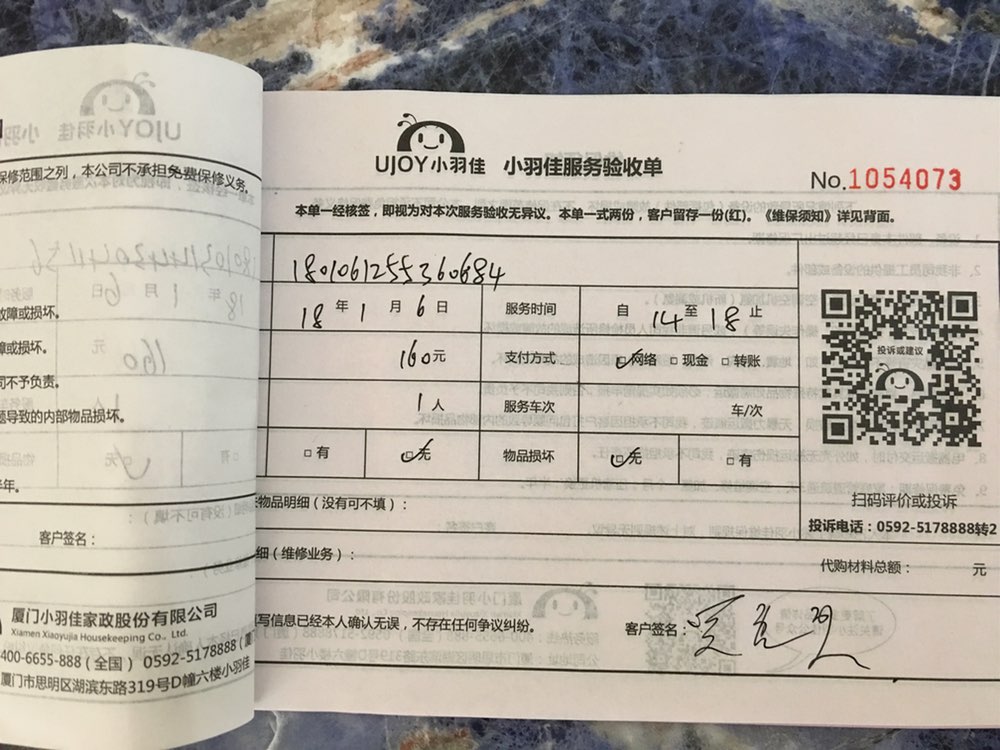 保修范围之列，本公司不承担免费保修义务。
故障或损坏。
障或损坏。
司不予负责。
题导致的内部物品损坏。
半年。
客户签名：
厦门小羽佳家政股份有限公司
Xiamen Xiaoyujia Housekeeping Co., Ltd.
400-6655-888（全国） 0592-5178888（厦门
厦门市思明区湖滨东路319号D幢六楼小羽佳
UJOY小羽佳 小羽佳服务验收单
No.1054073
本单一经核签，即视为对本次服务验收无异议。本单一式两份，客户留存一份(红)。《维保须知》详见背面。
180106125536 0684
18 年 1 月 6 日 服务时间 自 14 至 18 止
160元 支付方式 网络 □ 现金 □ 转账
1 人 服务车次 车/次
□ 有 无 物品损坏 无 □ 有
物品明细（没有可不填）：
细（维修业务）：
代购材料总额： 元
填写信息已经本人确认无误，不存在任何争议纠纷。
客户签名：
投诉或建议
扫码评价或投诉
投诉电话：0592-5178888转2